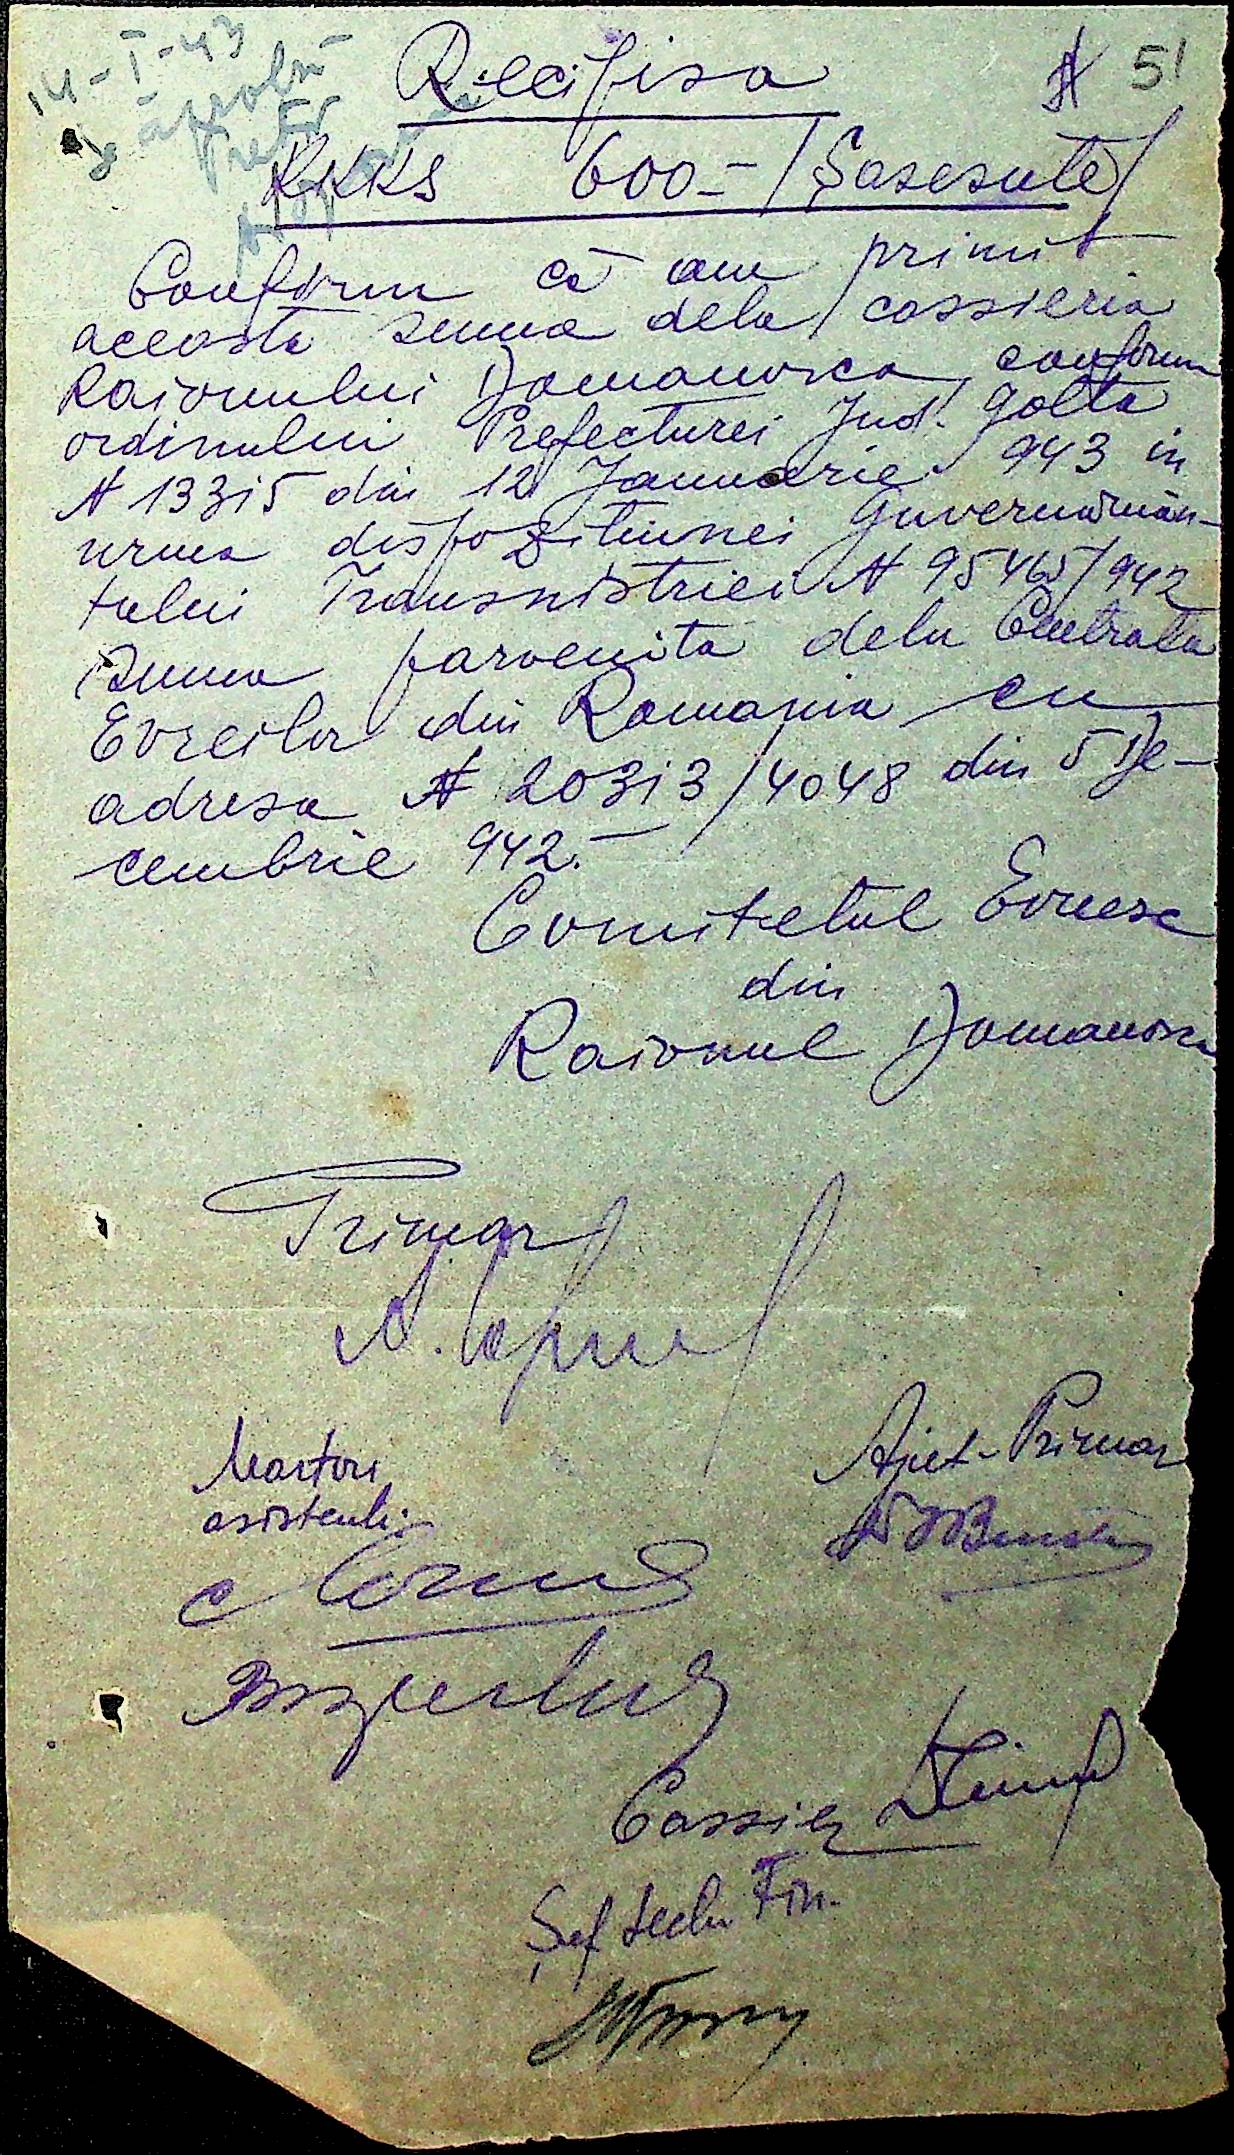 14-I-43
Recipisa
N 51
RKKS 600 – /Șasesute/
Conform că am primit
aceasta suma dela cassieria
Raionului Domanovca, conform
ordinului Prefecturei Jud. Golta
N 13315 din 12 Januarie 943 in
urma dispozitiunei Guvernămân-
tului Transnistriei N 95465/942
suma parvenita dela Centrala
Evreilor din Romania cu
adresa N 20313/4048 din 5 De-
cembrie 942.–
Comitetul Evreesc
din
Raionul Domanovca
Primar
Martori
asistenti:
Ajut-Primar
Cassier
Șef Fin.